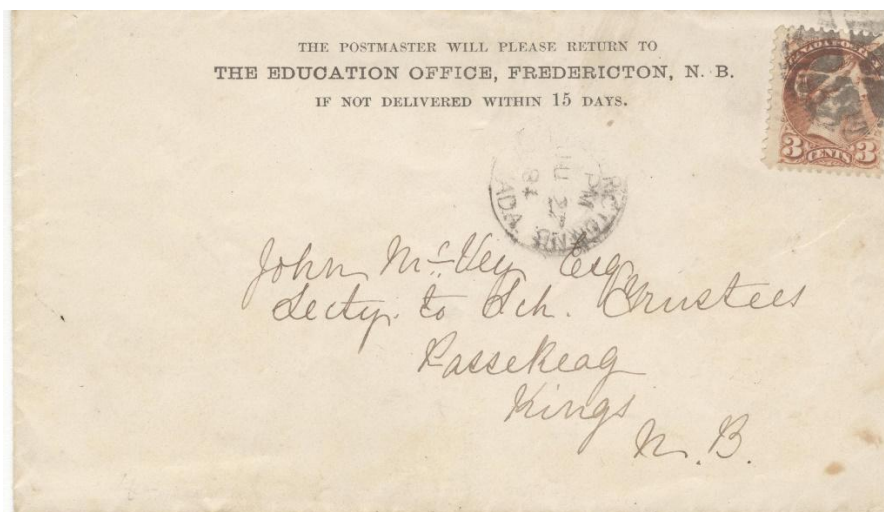 THE POSTMASTER WILL PLEASE RETURN TO
THE EDUCATION OFFICE, FREDERICTON, N. B.
IF NOT DELIVERED WITHIN 15 DAYS.
3 CENTS 3
PM
84
John McVey Esq
Secty. to Sch. Trustees
Passekeag
Kings
N. B.